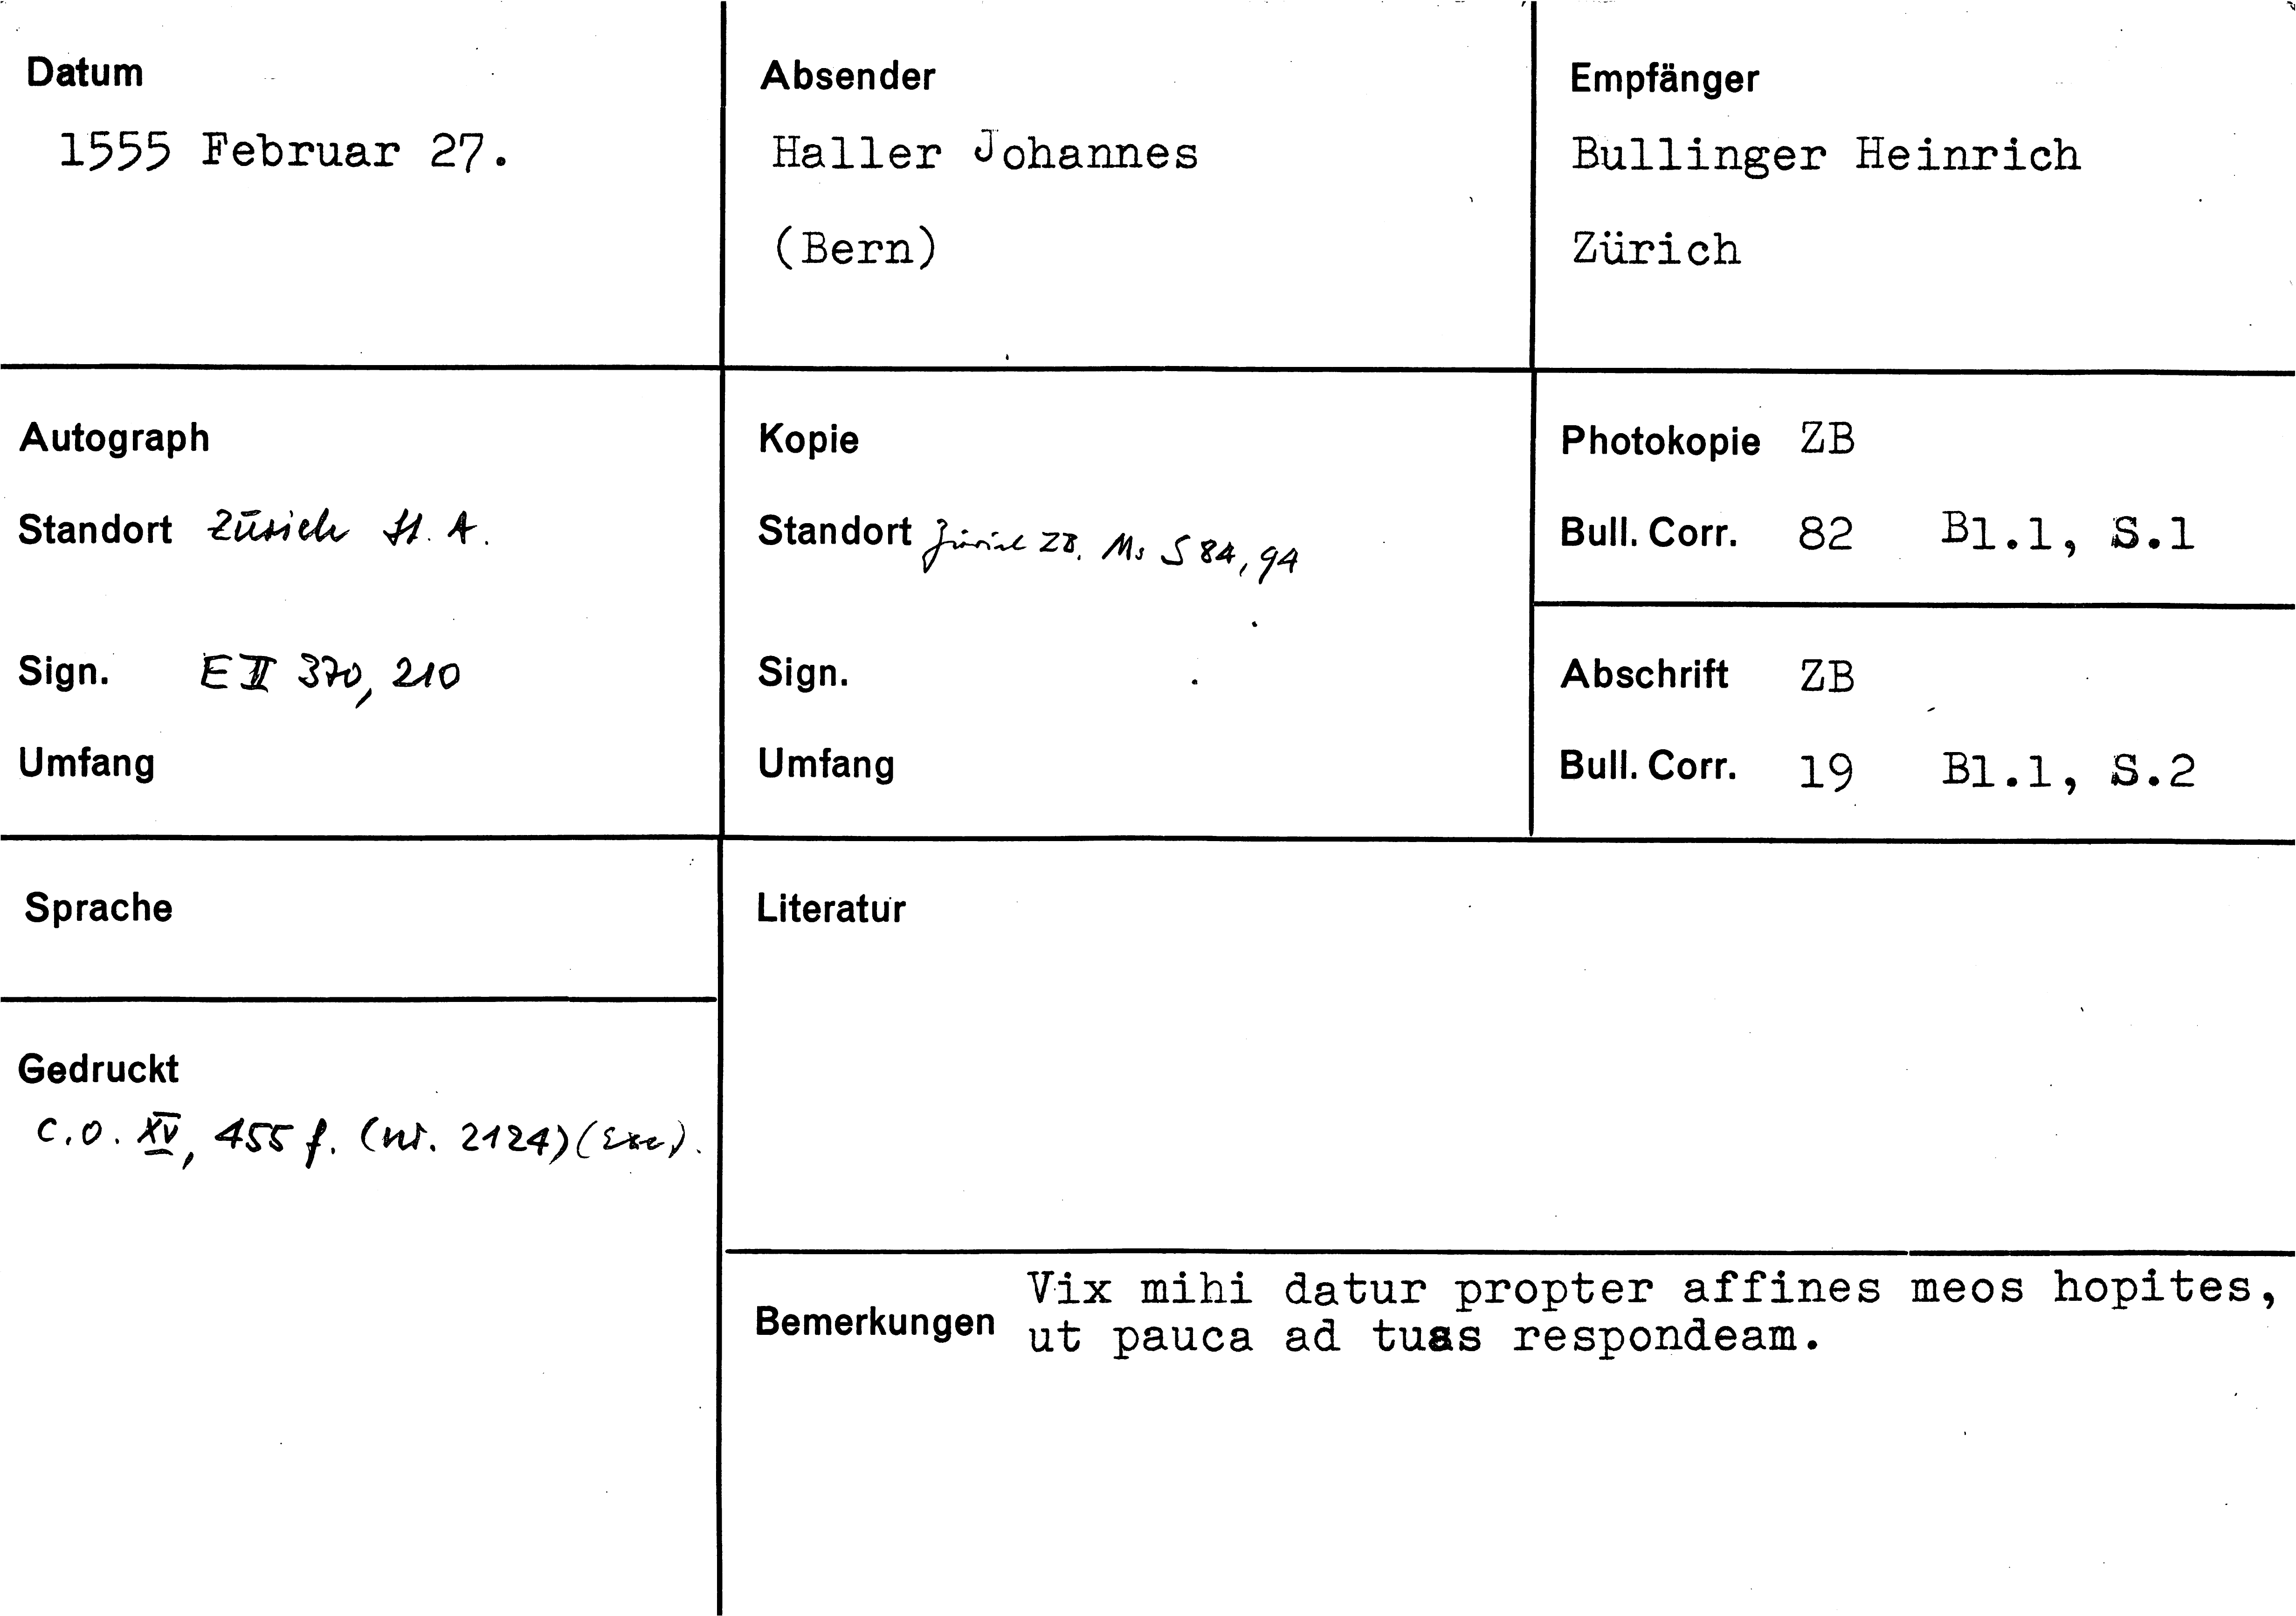 Datum
1555 Februar 27.
Absender
Haller Johannes
(Bern)
Empfänger
Bullinger Heinrich
Zürich
Autograph
Standort Zürich St. A.
Sign. E II 370, 210
Umfang
Kopie
Standort Zürich ZB. Ms S 84, 94
Sign.
Umfang
Photokopie ZB
Bull. Corr. 82 Bl.1, S.1
Abschrift ZB
Bull. Corr. 19 Bl.1, S.2
Sprache
Gedruckt
C.O. XV, 455 f. (nr. 2124) (Exc).
Literatur
Bemerkungen
Vix mihi datur propter affines meos hopites,
ut pauca ad tuas respondeam.